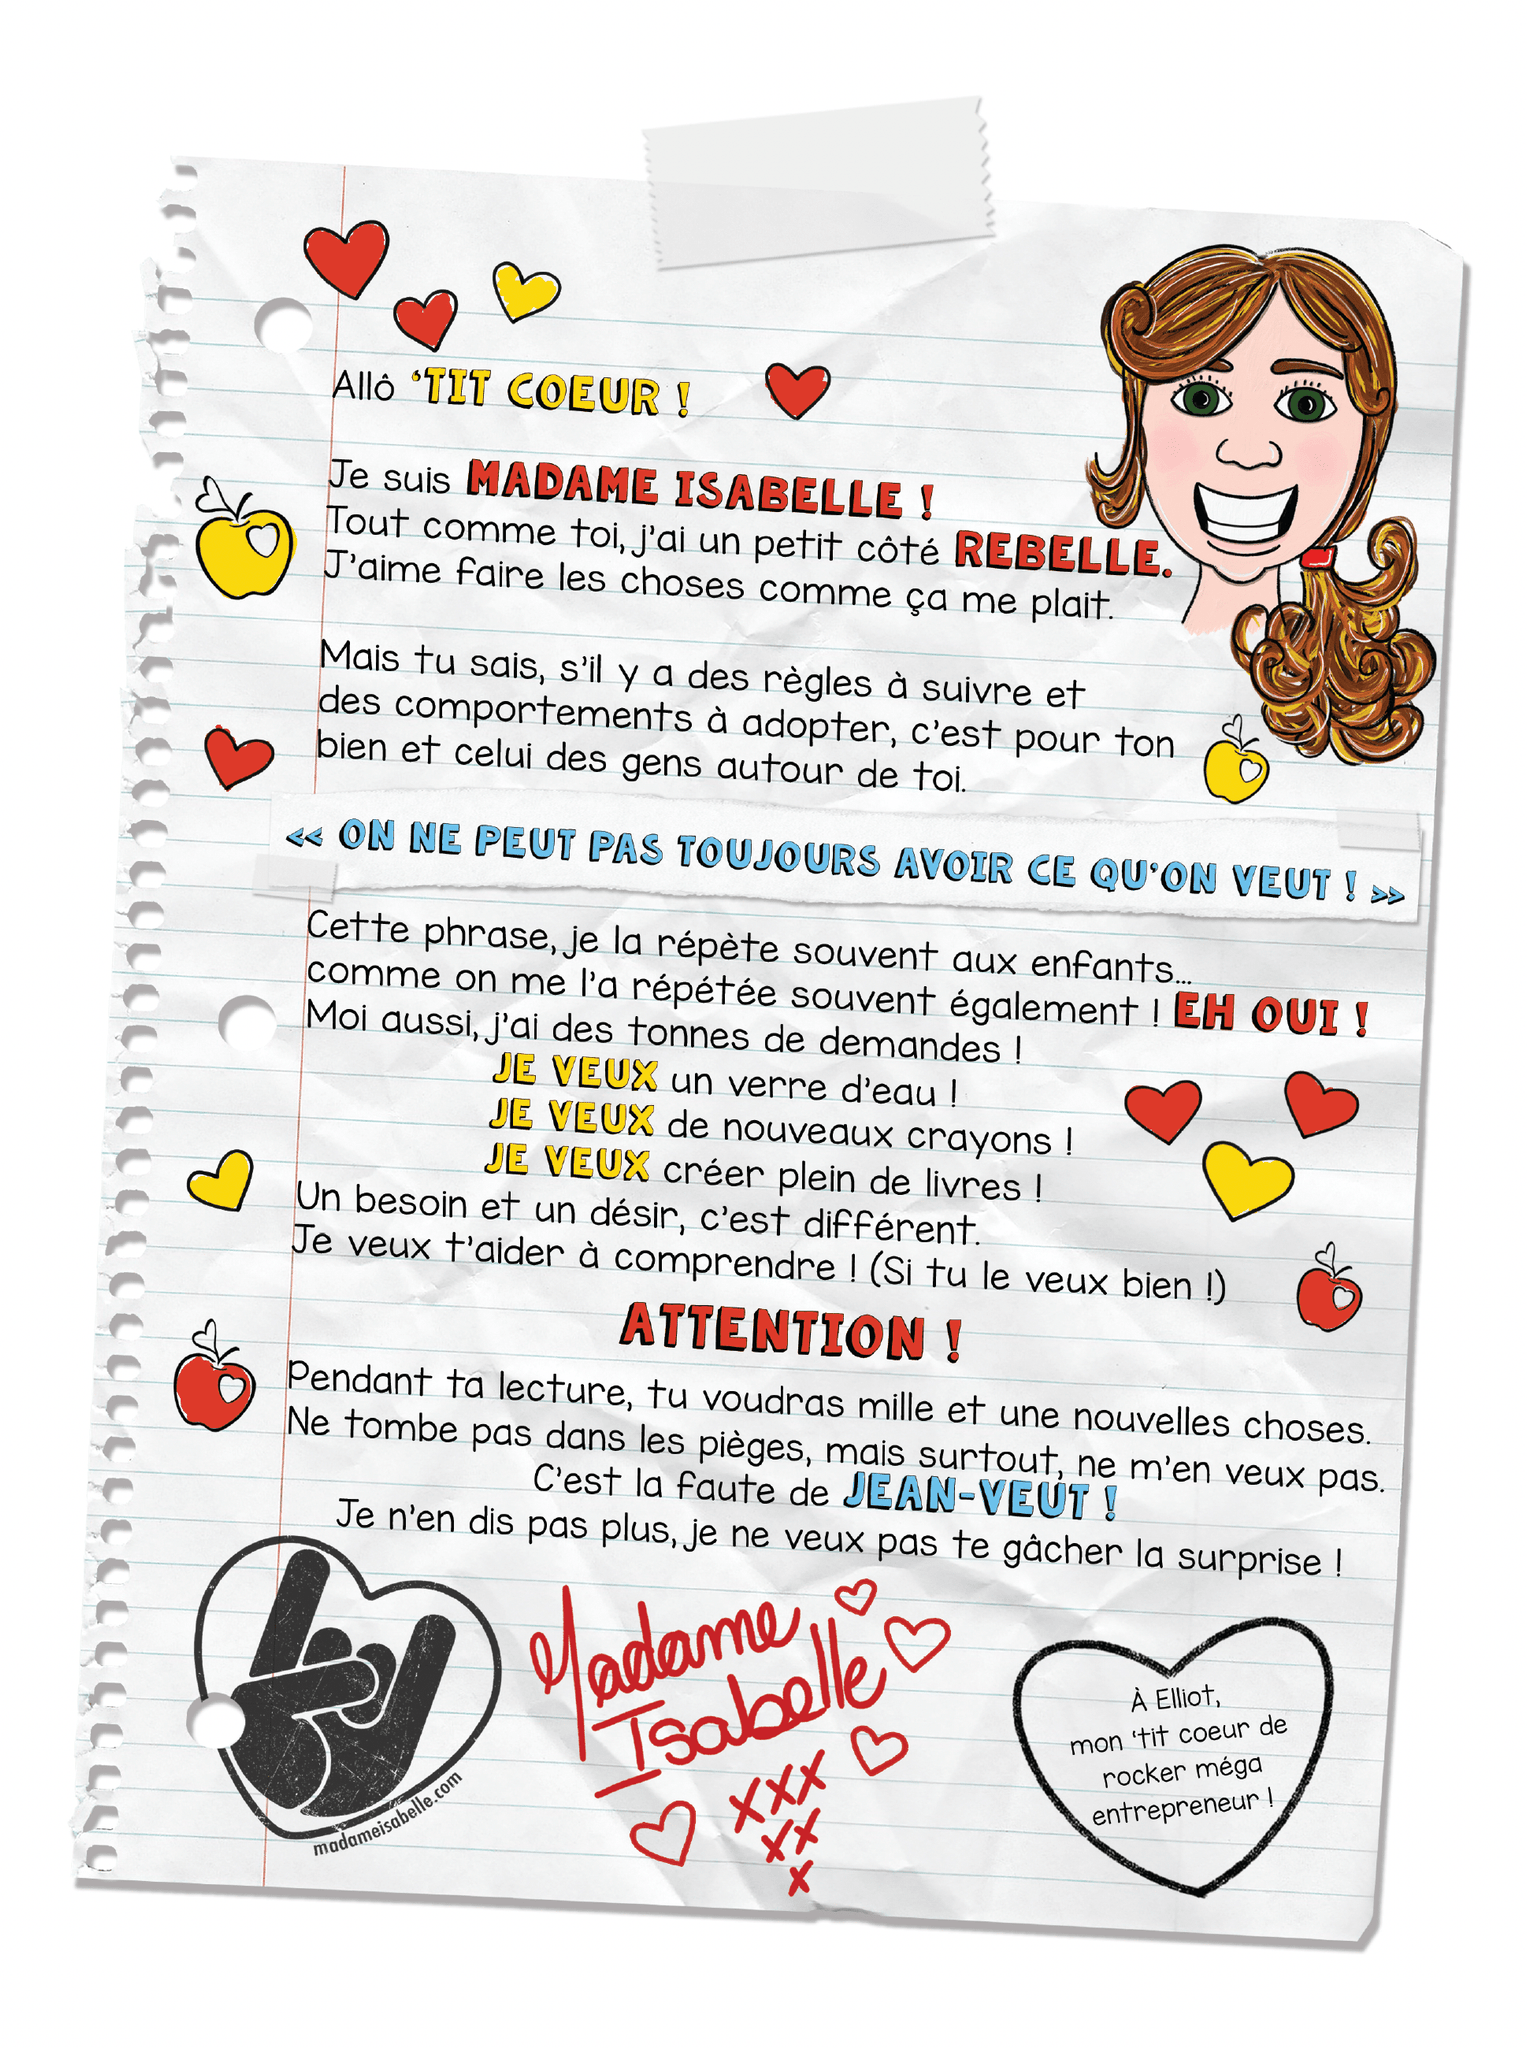 Allô ‘TIT COEUR !
Je suis MADAME ISABELLE !
Tout comme toi, j'ai un petit côté REBELLE.
J'aime faire les choses comme ça me plait.
Mais tu sais, s'il y a des règles à suivre et
des comportements à adopter, c'est pour ton
bien et celui des gens autour de toi.
« ON NE PEUT PAS TOUJOURS AVOIR CE QU'ON VEUT ! »
Cette phrase, je la répète souvent aux enfants...
comme on me l'a répétée souvent également ! EH OUI !
Moi aussi, j'ai des tonnes de demandes !
JE VEUX un verre d'eau !
JE VEUX de nouveaux crayons !
JE VEUX créer plein de livres !
Un besoin et un désir, c'est différent.
Je veux t'aider à comprendre ! (Si tu le veux bien !)
ATTENTION !
Pendant ta lecture, tu voudras mille et une nouvelles choses.
Ne tombe pas dans les pièges, mais surtout, ne m'en veux pas.
C'est la faute de JEAN-VEUT !
Je n'en dis pas plus, je ne veux pas te gâcher la surprise !
madameisabelle.com
Madame
Isabelle
xxx
xx
x
À Elliot,
mon ‘tit coeur de
rocker méga
entrepreneur !